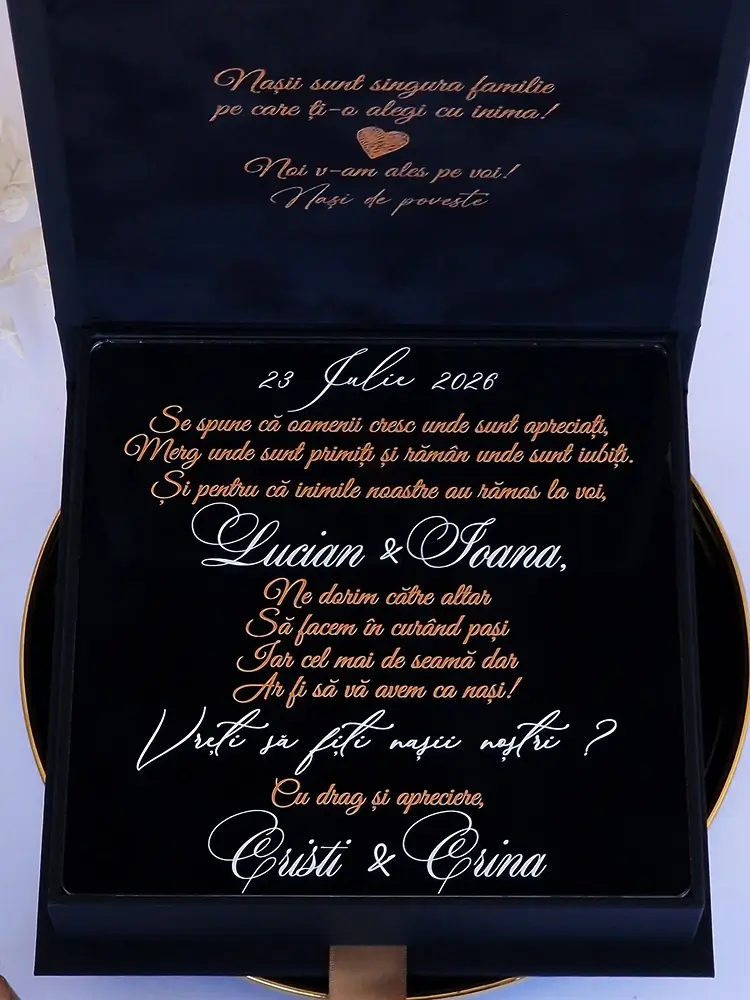 Nașii sunt singura familie
pe care ți-o alegi cu inima!
Noi v-am ales pe voi!
Nași de poveste
23 Iulie 2026
Se spune că oamenii cresc unde sunt apreciați,
Merg unde sunt primiți și rămân unde sunt iubiți.
Și pentru că inimile noastre au rămas la voi,
Lucian & Ioana,
Ne dorim către altar
Să facem în curând pași
Iar cel mai de seamă dar
Ar fi să vă avem ca nași!
Vreți să fiți nașii noștri ?
Cu drag și apreciere,
Cristi & Crina